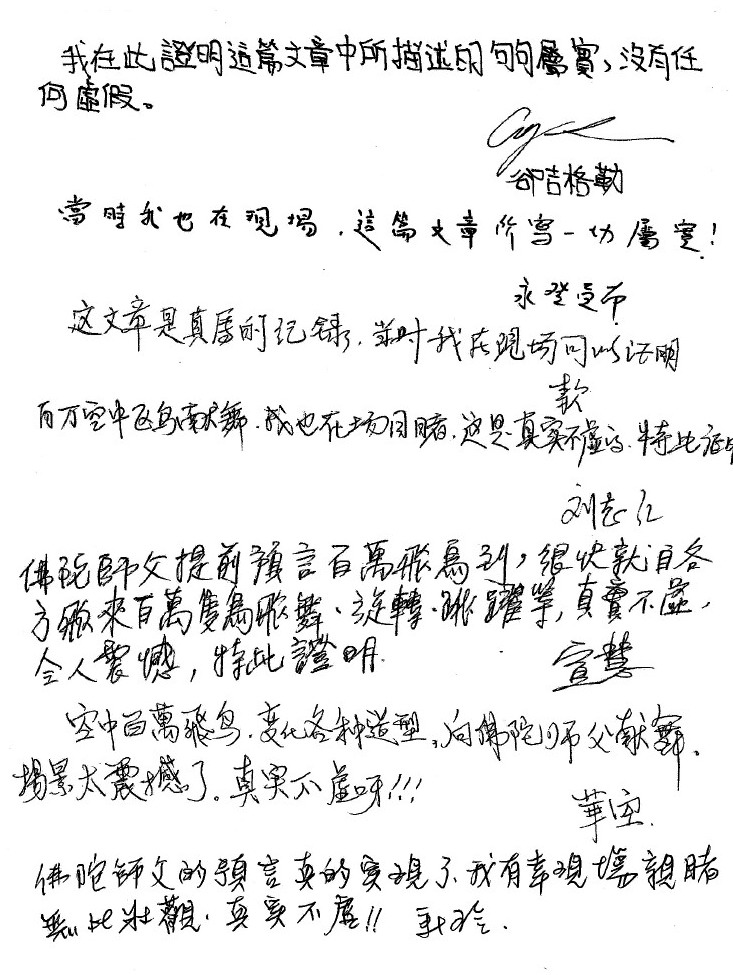 我在此證明這篇文章中所描述的句句屬實,沒有任
何虛假。
卻吉格勒
當時我也在現場,這篇文章所寫一切屬實!
永登多布
这文章是真居的纪録,当时我在现场可以证明
百万空中飞鸟献舞.我也在场目睹.这是真实不虚的.特此证明
刘志仁
佛陀師父提前預言百萬飛鳥到,很快就自各
方飛來百萬隻鳥飛舞、旋轉、跳躍等,真實不虛,
令人震憾,特此證明.
宣慧
空中百萬飛鸟.变化各种造型,向佛陀师父献舞.
場景太震撼了。真实不虚呀!!!
佛陀師父的預言真的實現了.我有幸現場親睹
無比壯觀.真实不虛!!